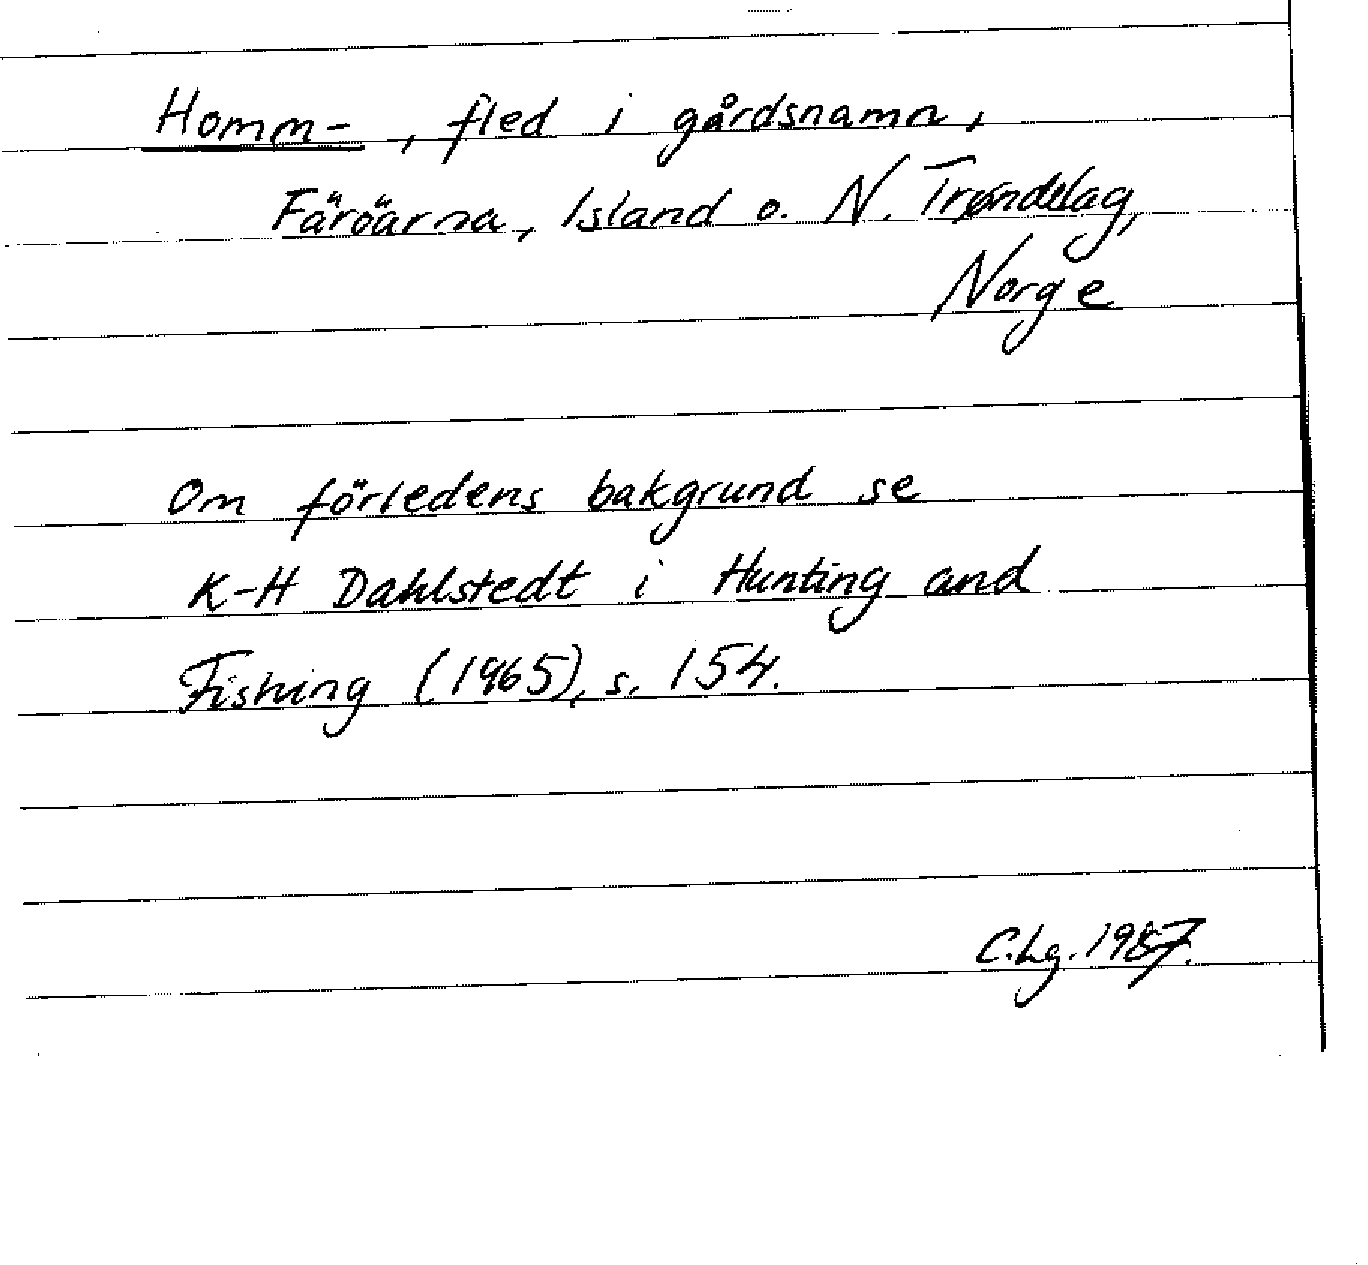 Homm-, fled i gårdsnamn,
Färöarna, Island o. N. Trøndelag,
Norge
Om förledens bakgrund se
K-H Dahlstedt i Hunting and
Fishing (1965), s. 154.
C.Lg. 1987.